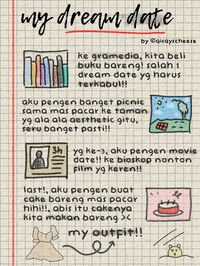 my dream date
by @aisayscheese
ke gramedia, kita beli
buku bareng! salah 1
dream date yg harus
terkabul!!
aku pengen banget picnic
sama mas pacar ke taman
yg ala ala aesthetic gitu,
seru banget pasti!!
yg ke-3, aku pengen movie
date!! ke bioskop nonton
film yg keren!!
last!, aku pengen buat
cake bareng mas pacar
hihi!!, abis itu cakenya
kita makan bareng ><
my outfit!!